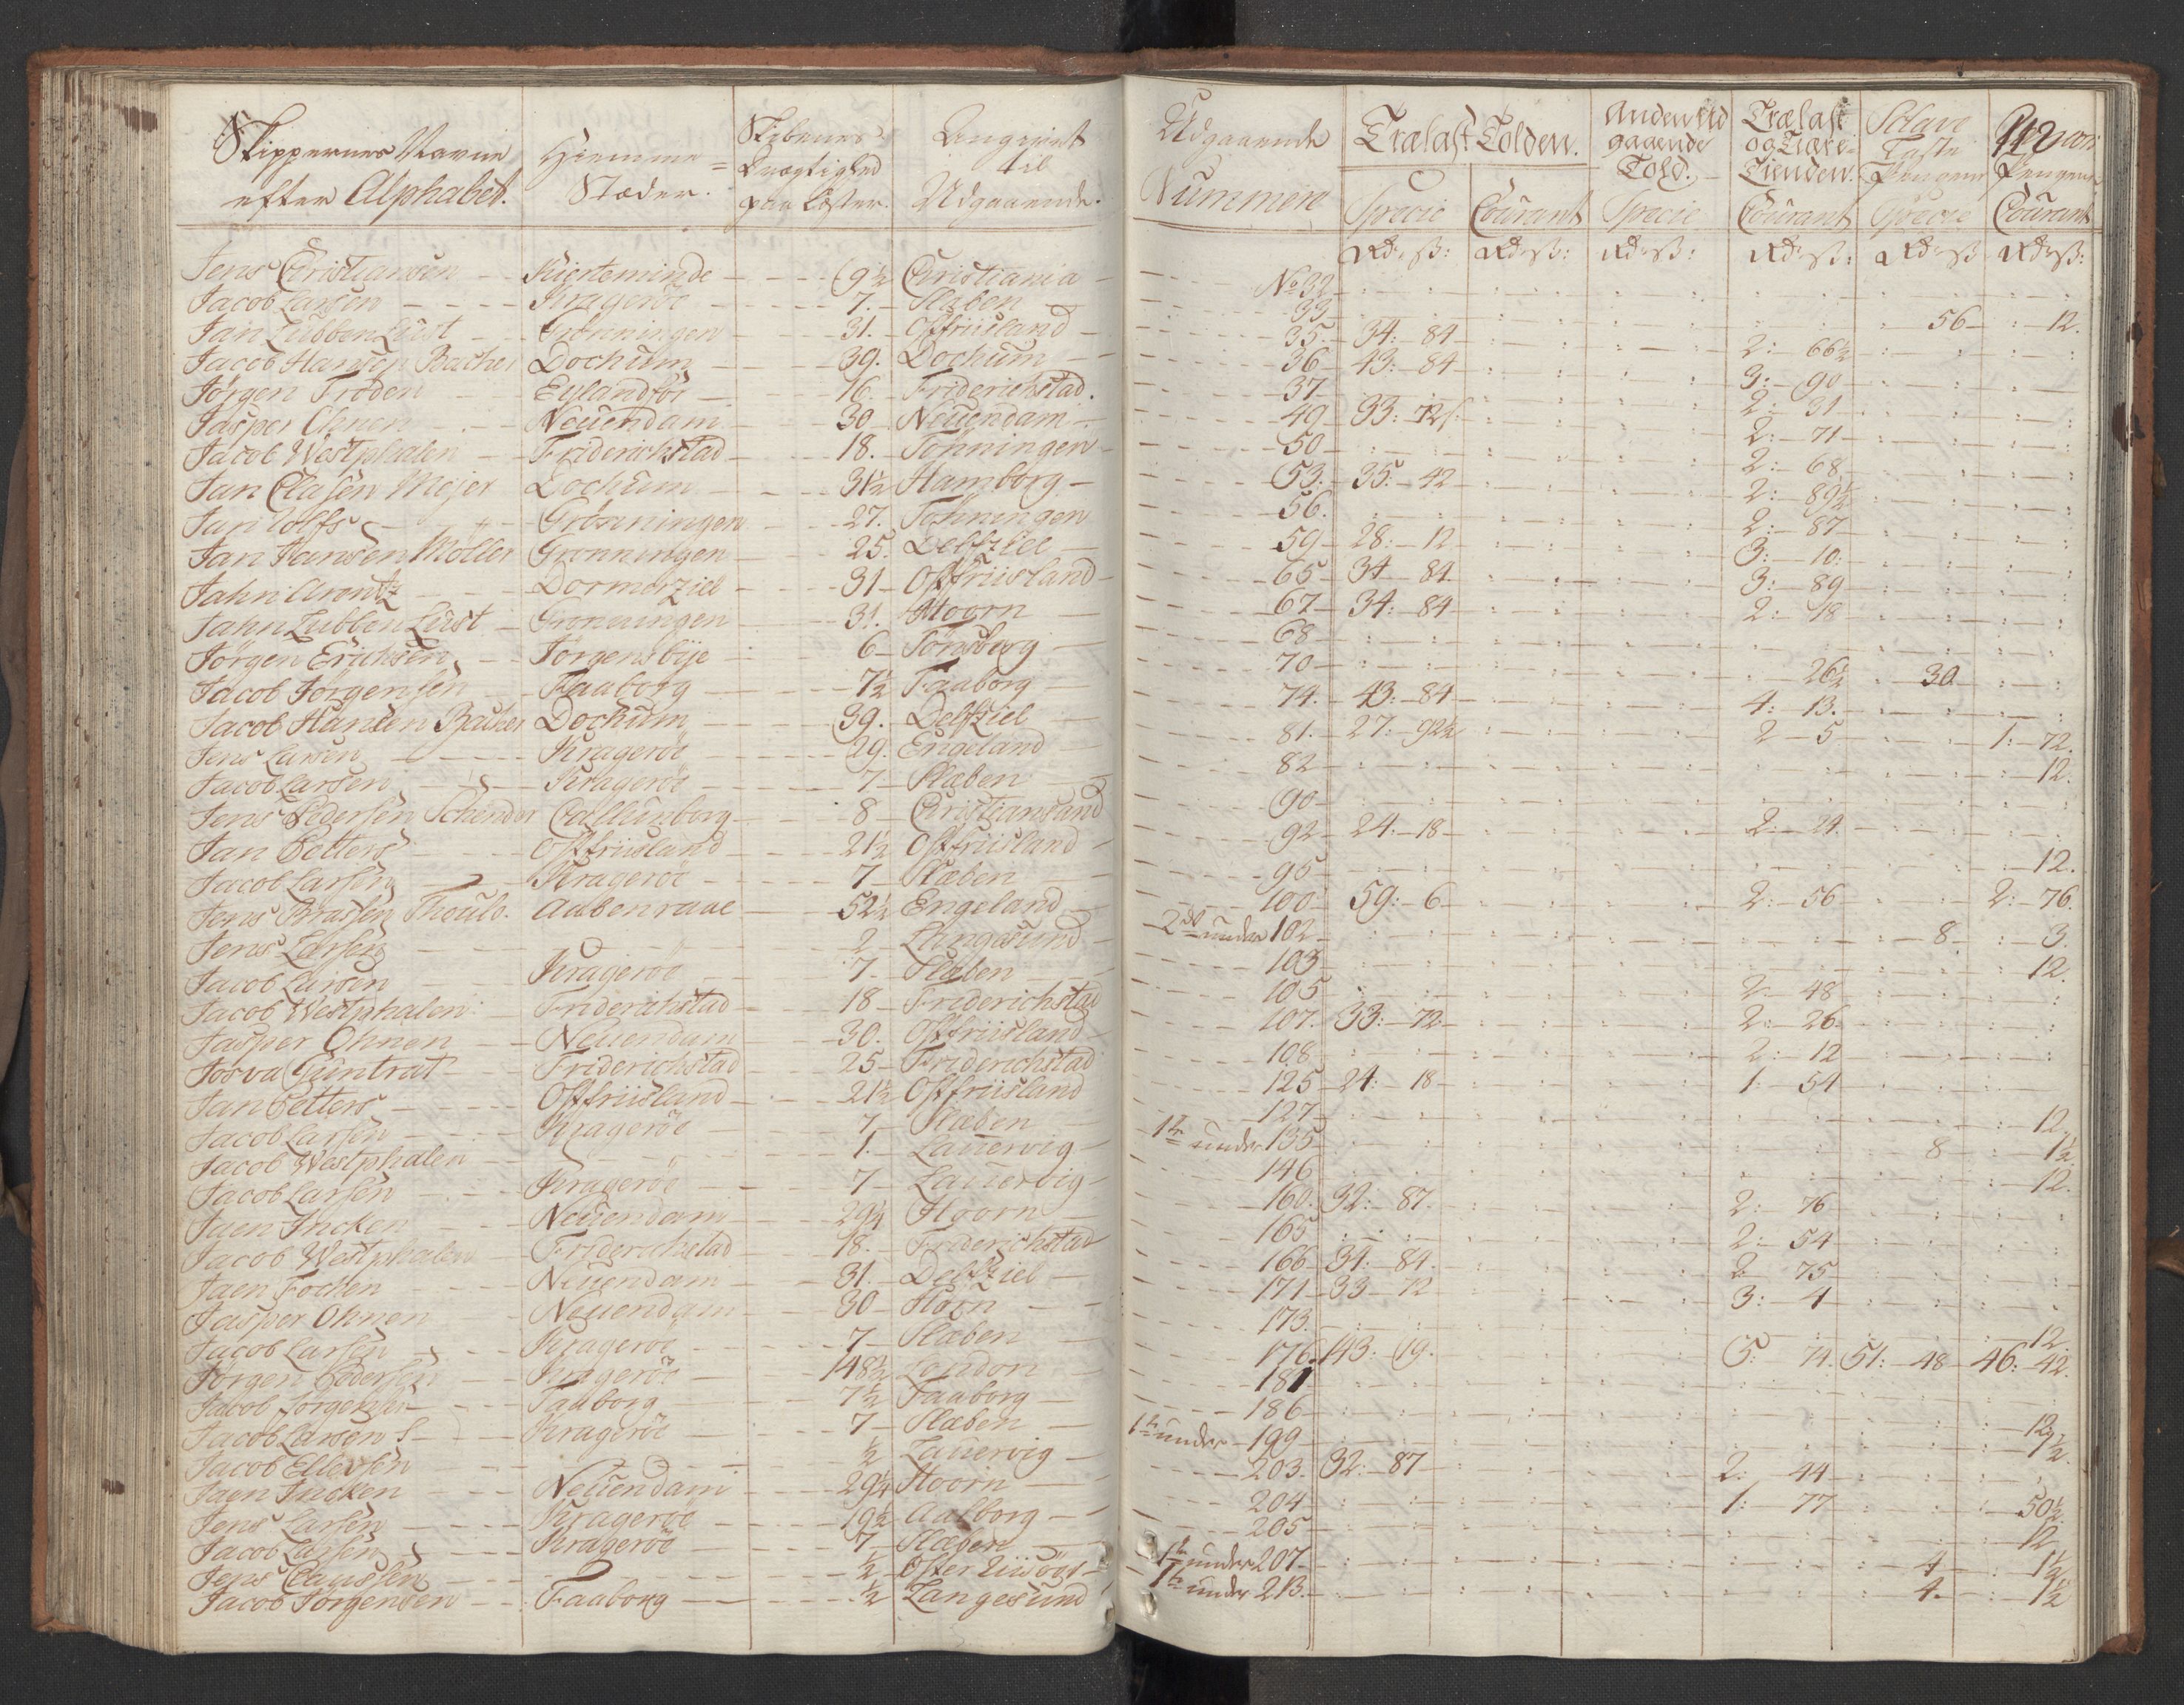 112
Skippernes Navne efter Alphabet.
Hiemme Stæder.
Skibenes Drægtighed paa Læster.
Angivet til Udgaaende.
Udgaaende Nummere
Trælast Tolden.
Anden Udgaaende Told.
Trælast og Tiære Tienden.
Pengene
Specie Courant Specie Courant Specie Courant
Jens Christiansen Kierteminde 9½ Christiania No 32
Jacob Larsen Kragerøe 7. Stæben 33 56 12.
Jan Lubben Lüst Grönningen 31. Ostfriisland 35. 34: 84 2: 66½
Jacob Hansen Backer Dochum 39. Dochum 36 43: 84 3: 90
Jørgen Froden Eylandför 16. Friderichstad. 37 2: 31
Jasper Ohnen Neuendam 30 Neuendam 49 33: 72 2: 71
Jacob Westphalen Friderichstad 18. Tönningen 50 2: 68
Jan Clasen Mejer Dochum 31½ Hamborg 53. 35: 42 2: 89½
Jan Wolfs Grönningen 27. Tönningen 56. 2: 87
Jan Jansen Möller Gronningen 25. Delfziel 59 28: 12 3: 10
Jahn Arentz Dormerziel 31 Ostfriisland 65 34 84 3: 89
Jahn Lubben Lüst Gronningen 31. Hoorn 67 34: 84 2: 18
Jörgen Erichsen Jörgensbye 6 Tönsberg 68
Jacob Jörgensen Faaborg 7½ Faaborg 70 26½ 30
Jacob Hansen Backer Dochum 39. Delfziel 74. 43: 84 4: 13.
Jens Larsen Kragerøe 29. Engeland 81. 27: 92½ 2 5 1: 72.
Jacob Larsen Kragerøe 7 Stæben 82 12.
Jens Pedersen Schender Callunborg 8 Christiansand 90
Jan Petters Ostfriisland 21½ Ostfriisland 92 24: 18 2: 24.
Jacob Larsen Kragerøe 7 Stæben 95 12.
Jens Brassen Thoulo. Aabenraae 52½ Engeland 100 59: 6 2: 56 2: 76.
Jens Larsen 2 Langesund 2de under 102 8 3.
Jacob Larsen Kragerøe 7 Stæben 103 12.
Jacob Westphalen Friderichstad 18 Friderichstad 105 2. 48
Jasper Ohnen Neuendam 30. Ostfriisland 107. 33: 72 2: 26
Josva Guntrat Friderichstad 25 Friderichstad 108 2: 12
Jan Petters Ostfriisland 21½ Ostfriisland 125 24: 18 1: 54
Jacob Larsen Kragerøe 7 Stæben 127 12
Jacob Westphalen 1. Laurvig 1te under 135 8 1½
Jacob Larsen Kragerøe 7 Laurvig 146 12.
Jaen Fncken Neuendam 29¼ Hoorn 160. 32: 87. 2: 76
Jacob Westphalen Friderichstad 18. Friderichstad 165 2: 54
Jaen Focken Neuendam 31. Delfziel 166 34: 84. 2 75
Jasper Ohnen Neuendam 30 Horn 171 33 72 3: 4
Jacob Larsen Kragerøe 7 Stæben 173. 12
Jörgen Pedersen Kragerøe 148½ London 176. 143: 19. 5: 74. 51: 48 46: 42.
Jacob Jorgensen Faaborg 7½ Faaborg 181
Jacob Larsen S Kragerøe 7 Stæben 186 12
Jacob Ellevsen ½ Laurvig 1te under 199 1½
Jaen Fncken Neuendam 29¼ Hoorn 203. 32: 87 2: 44
Jens Larsen Kragerøe 19½ Aalborg 204 1: 77 50½
Jacob Larsen Kragerøe 7 Stæben 205 12
Jens Claussen ½ Oster Riisöer 1te under 207 4 1½
Jacob Jorgensen Faaborg ½ Langesund 1te under 213. 4. 1½